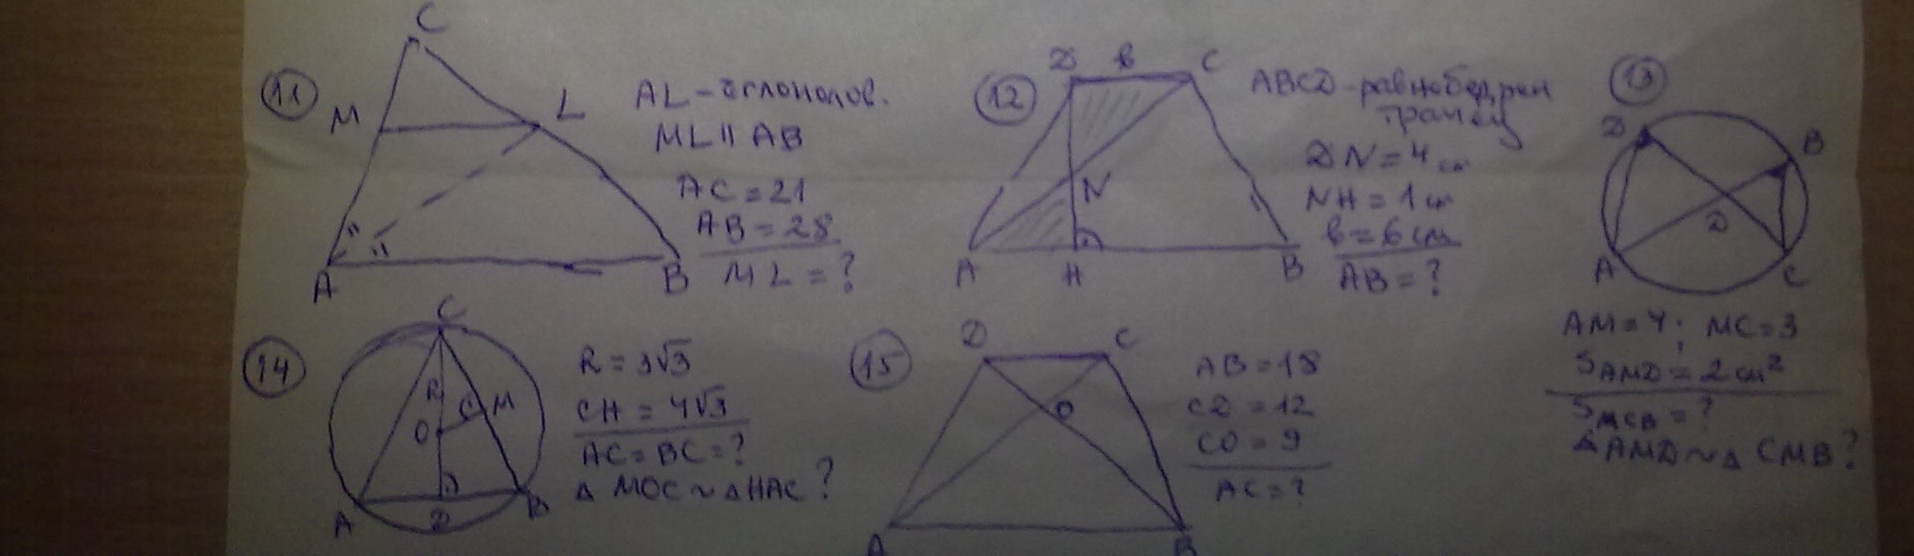 11
C
M
L
A
B
AL - ъглопол.
ML || AB
AC = 21
AB = 28
ML = ?
12
D
b
C
N
A
H
B
ABCD - равнобедрен
трапец
DN = 4 cm
NH = 1 cm
b = 6 cm
AB = ?
13
D
B
D
A
C
AM = 4; MC = 3
S AMD = 2 cm²
S MCB = ?
△ AMD ~ △ CMB ?
14
C
R
M
O
A
D
B
R = 3√3
CH = 4√3
AC = BC = ?
△ MOC ~ △ HAC ?
15
D
C
O
A
B
AB = 18
CD = 12
CO = 9
AC = ?